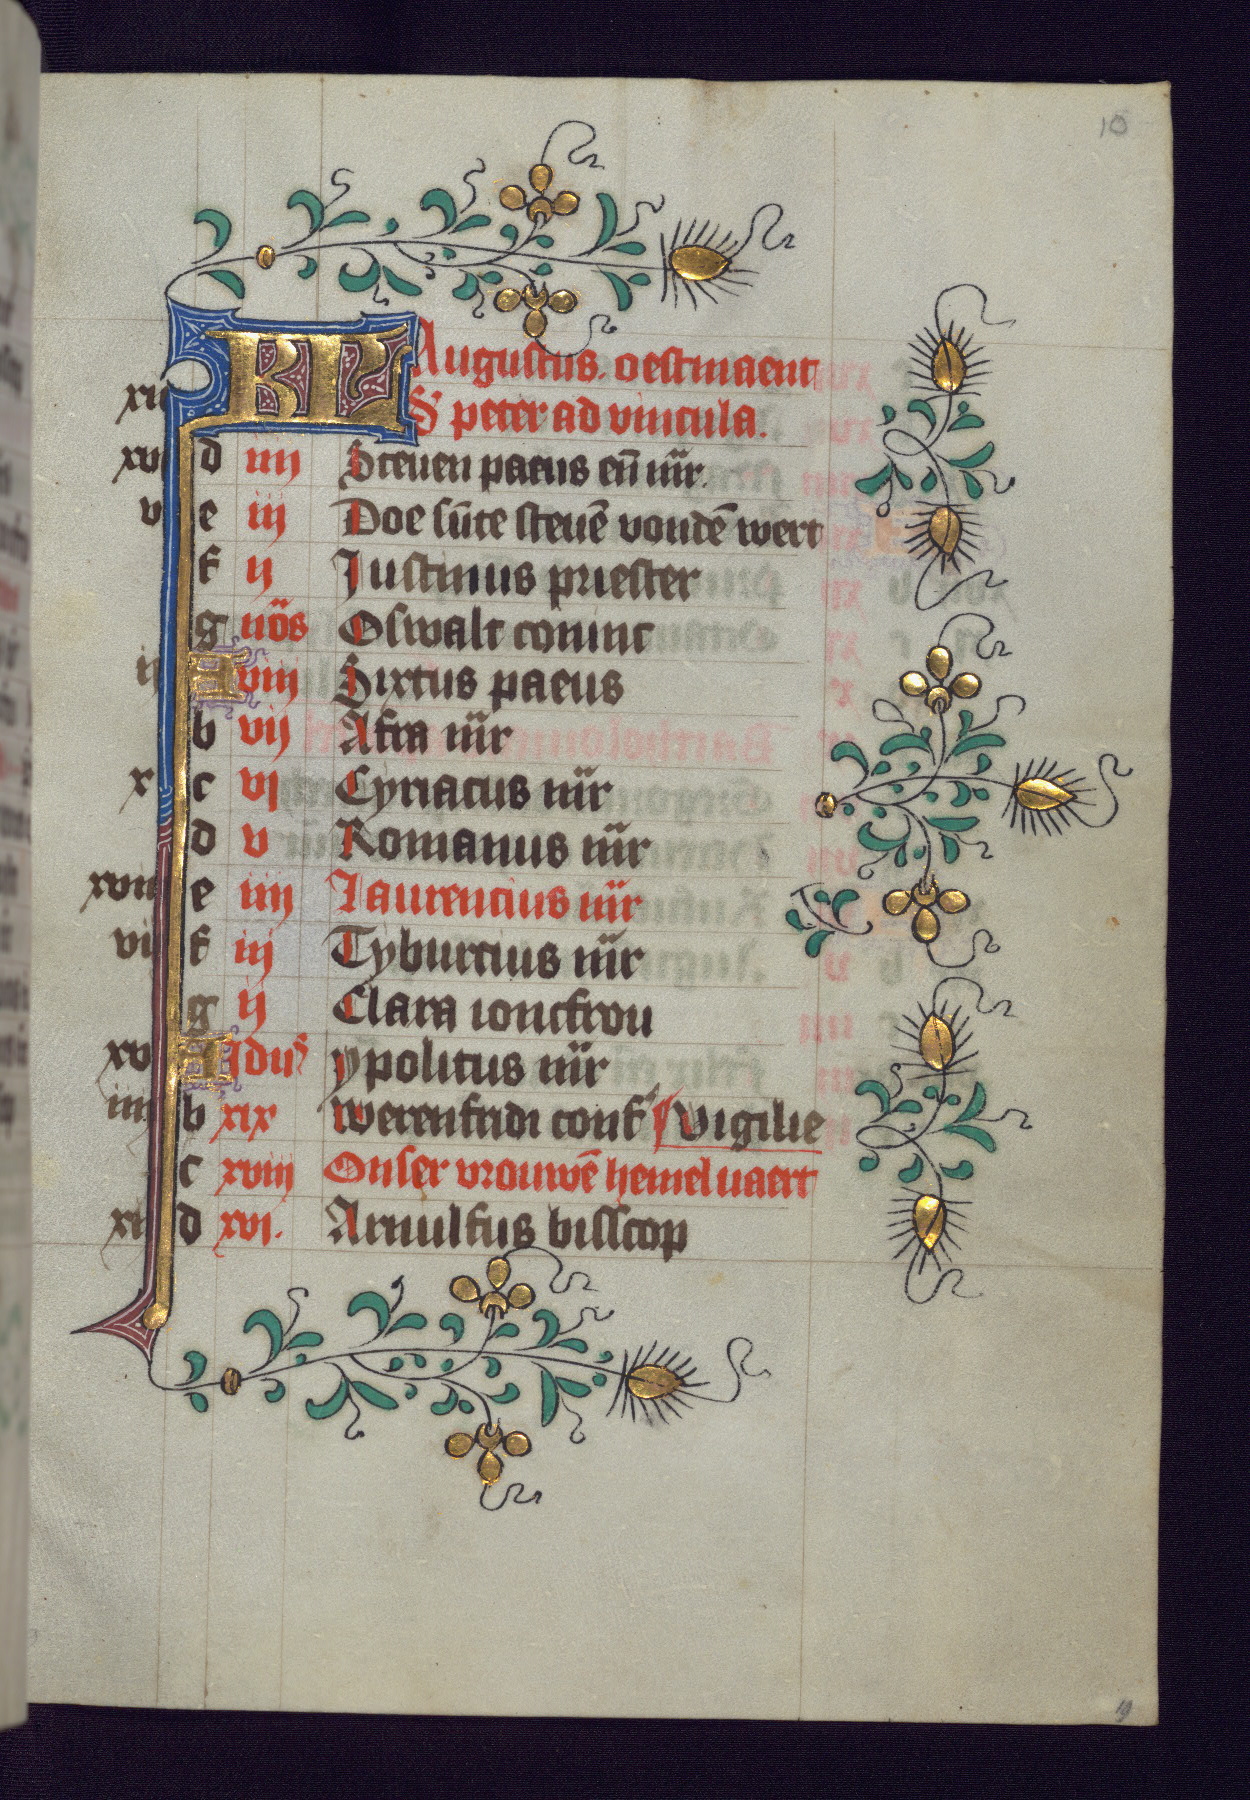 10
KL Augustus. oestmaent
xii S peter ad vincula.
xvi d iiij Steuen paeus en̄ mr̄.
v e iij Doe sūte steuē vondē wert
f ij Justinus priester
g nōs Oswalt coninc
ij A viij Sixtus paeus
b vij Afra mr̄
x c vj Cyriacus mr̄
d v Romanus mr̄
xviij e iiij Laurencius mr̄
vij f iij Tyburcius mr̄
g ij Clara ioncfrou
xv A Idus ypolitus mr̄
iiij b xix werenfridi conf Vigilie
c xviij Onser vrouwē hemeluaert
xij d xvi. Arnulfus bisscop